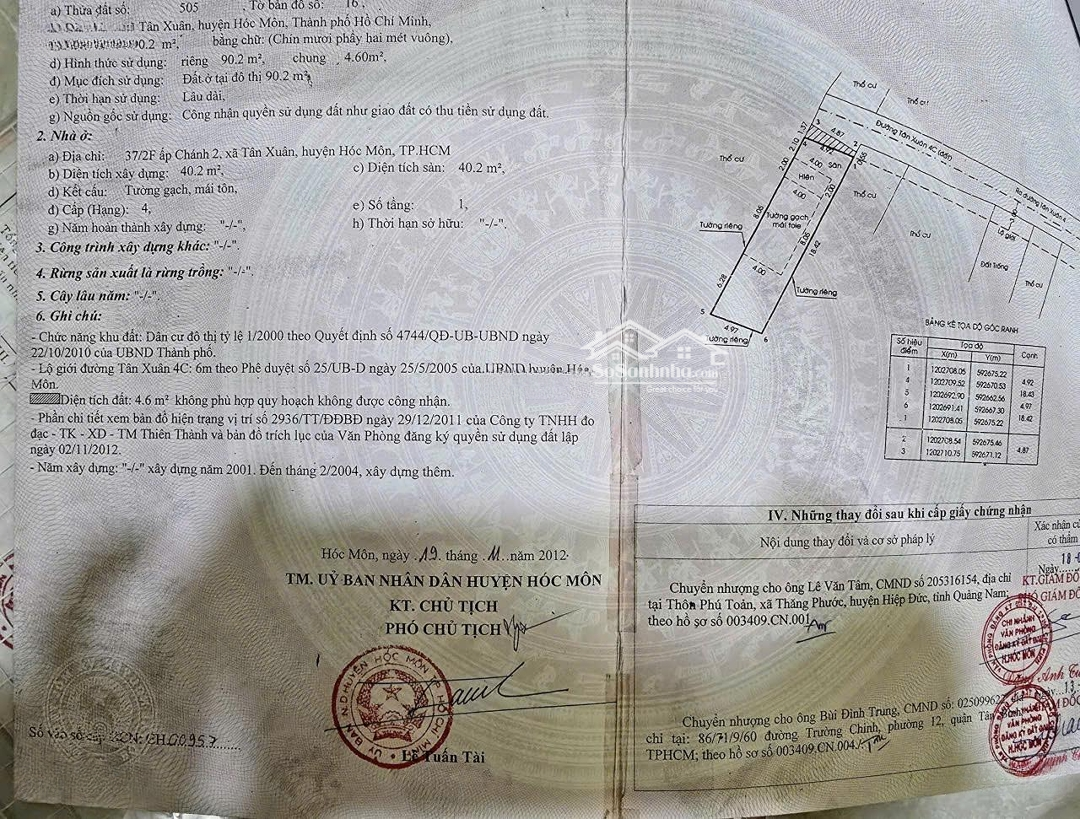 a) Thửa đất số: 505 , Tờ bản đồ số: 16 ,
Tân Xuân, huyện Hóc Môn, Thành phố Hồ Chí Minh,
90.2 m², bằng chữ: (Chín mươi phẩy hai mét vuông),
d) Hình thức sử dụng: riêng 90.2 m², chung 4.60m²,
đ) Mục đích sử dụng: Đất ở tại đô thị 90.2 m²,
e) Thời hạn sử dụng: Lâu dài,
g) Nguồn gốc sử dụng: Công nhận quyền sử dụng đất như giao đất có thu tiền sử dụng đất.
2. Nhà ở:
a) Địa chỉ: 37/2F ấp Chánh 2, xã Tân Xuân, huyện Hóc Môn, TP.HCM
b) Diện tích xây dựng: 40.2 m², c) Diện tích sàn: 40.2 m²,
d) Kết cấu: Tường gạch, mái tôn,
đ) Cấp (Hạng): 4, e) Số tầng: 1,
g) Năm hoàn thành xây dựng: "-/-", h) Thời hạn sở hữu: "-/-".
3. Công trình xây dựng khác: "-/-".
4. Rừng sản xuất là rừng trồng: "-/-".
5. Cây lâu năm: "-/-".
6. Ghi chú:
- Chức năng khu đất: Dân cư đô thị tỷ lệ 1/2000 theo Quyết định số 4744/QĐ-UB-UBND ngày
22/10/2010 của UBND Thành phố.
- Lộ giới đường Tân Xuân 4C: 6m theo Phê duyệt số 25/UB-D ngày 25/5/2005 của UBND huyện Hóc
Môn.
Diện tích đất: 4.6 m² không phù hợp quy hoạch không được công nhận.
- Phần chi tiết xem bản đồ hiện trạng vị trí số 2936/TT/ĐĐBĐ ngày 29/12/2011 của Công ty TNHH đo
đạc - TK - XD - TM Thiên Thành và bản đồ trích lục của Văn Phòng đăng ký quyền sử dụng đất lập
ngày 02/11/2012.
- Năm xây dựng: "-/-" xây dựng năm 2001. Đến tháng 2/2004, xây dựng thêm.
Hóc Môn, ngày 19 tháng 11 năm 2012
TM. UỶ BAN NHÂN DÂN HUYỆN HÓC MÔN
KT. CHỦ TỊCH
PHÓ CHỦ TỊCH
Lê Tuấn Tài
Số vào sổ cấp GCN: CH00957
Thổ cư
Thổ cư
Đường Tân Xuân 4C (đất)
Ra đường Tân Xuân 4
Thổ cư
Thổ cư
Thổ cư
Đất trống
Thổ cư
Lộ giới
1.37
4.87
2.10
4.92
0.55
2.00
4.00
Sân
Hiên
2.00
4.00
Tường gạch
mái tole
8.05
8.05
18.42
4.00
6.28
Tường riêng
Tường riêng
4.97
Tường riêng
5
6
BẢNG KÊ TỌA ĐỘ GÓC RANH
Số hiệu điểm Tọa độ Cạnh
X(m) Y(m)
1 1202708.05 592675.22
4.92
4 1202709.52 592670.53
18.43
5 1202692.90 592662.56
4.97
6 1202691.41 592667.30
18.42
1 1202708.05 592675.22
2 1202708.54 592675.46
4.87
3 1202710.75 592671.12
IV. Những thay đổi sau khi cấp giấy chứng nhận
Nội dung thay đổi và cơ sở pháp lý
Xác nhận củ
có thẩm
Ngày 18
KT.GIÁM ĐỐ
PHÓ GIÁM ĐỐ
Chuyển nhượng cho ông Lê Văn Tâm, CMND số 205316154, địa chỉ
tại Thôn Phú Toản, xã Thăng Phước, huyện Hiệp Đức, tỉnh Quảng Nam;
theo hồ sơ số 003409.CN.001
CHI NHÁNH
VĂN PHÒNG
ĐĂNG KÝ ĐẤT ĐAI
H.HÓC MÔN
Chuyển nhượng cho ông Bùi Đình Trung, CMND số: 02509962
chỉ tại: 86/71/9/60 đường Trường Chinh, phường 12, quận Tân Bình,
TPHCM; theo hồ sơ số 003409.CN.004
VĂN PHÒNG
ĐĂNG KÝ ĐẤT ĐAI
H.HÓC MÔN
SoSonhnha.com
Great choice for you